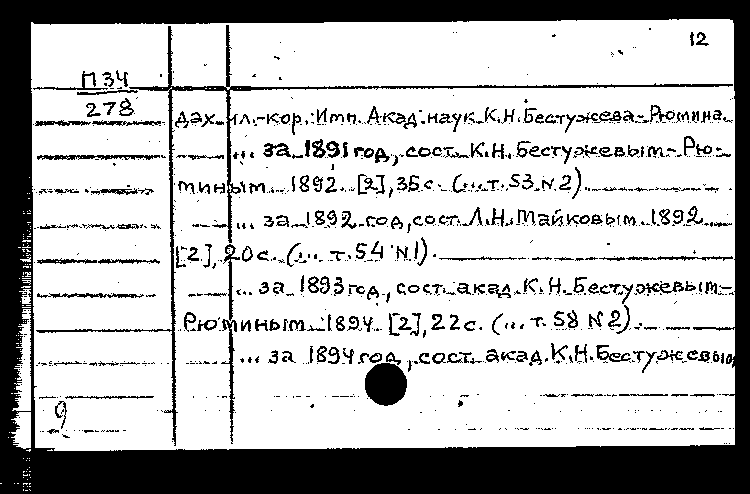 12
П34
278
дах чл.-кор. Имп. Акад. наук К.Н. Бестужева-Рюмина.
... за 1891 год, сост. К.Н. Бестужевым-Рю-
миным. 1892. [2], 35 с. (... т. 53 N 2).
... за 1892 год, сост. Л.Н. Майковым. 1892
[2], 20 с. (... т. 54 N 1).
... за 1893 год, сост. акад. К.Н. Бестужевым-
Рюминым. 1894. [2], 22 с. (... т. 58 N 2).
... за 1894 год, сост. акад. К.Н. Бестужевым